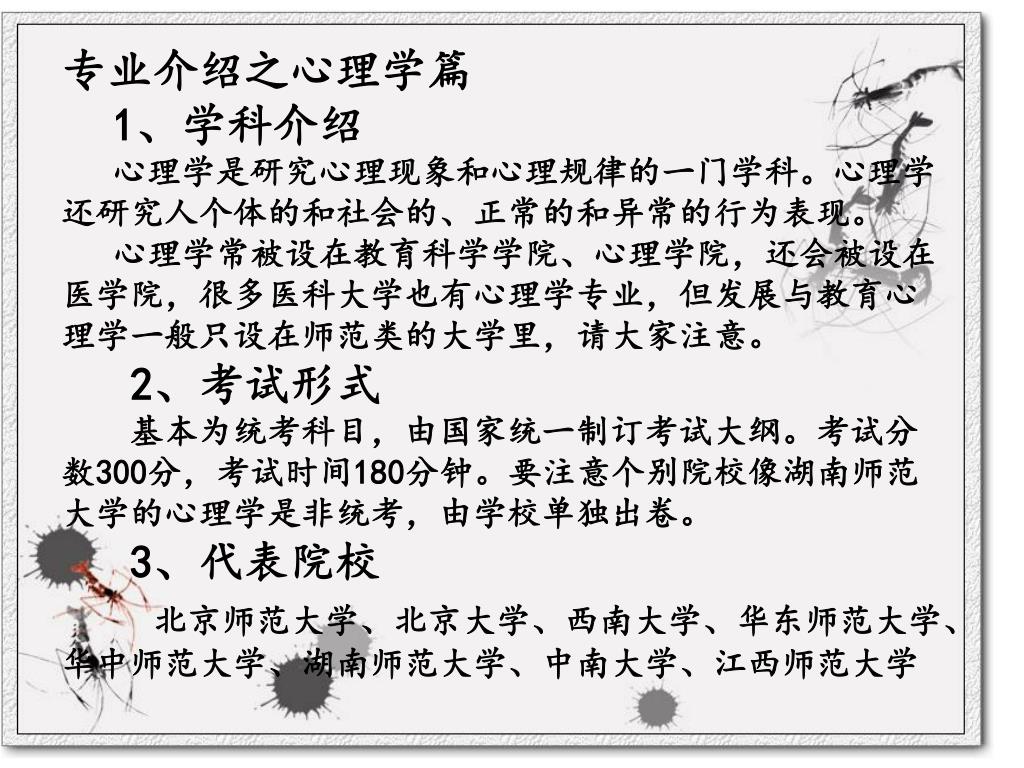 专业介绍之心理学篇
1、学科介绍
心理学是研究心理现象和心理规律的一门学科。心理学
还研究人个体的和社会的、正常的和异常的行为表现。
心理学常被设在教育科学学院、心理学院，还会被设在
医学院，很多医科大学也有心理学专业，但发展与教育心
理学一般只设在师范类的大学里，请大家注意。
2、考试形式
基本为统考科目，由国家统一制订考试大纲。考试分
数300分，考试时间180分钟。要注意个别院校像湖南师范
大学的心理学是非统考，由学校单独出卷。
3、代表院校
北京师范大学、北京大学、西南大学、华东师范大学、
华中师范大学、湖南师范大学、中南大学、江西师范大学